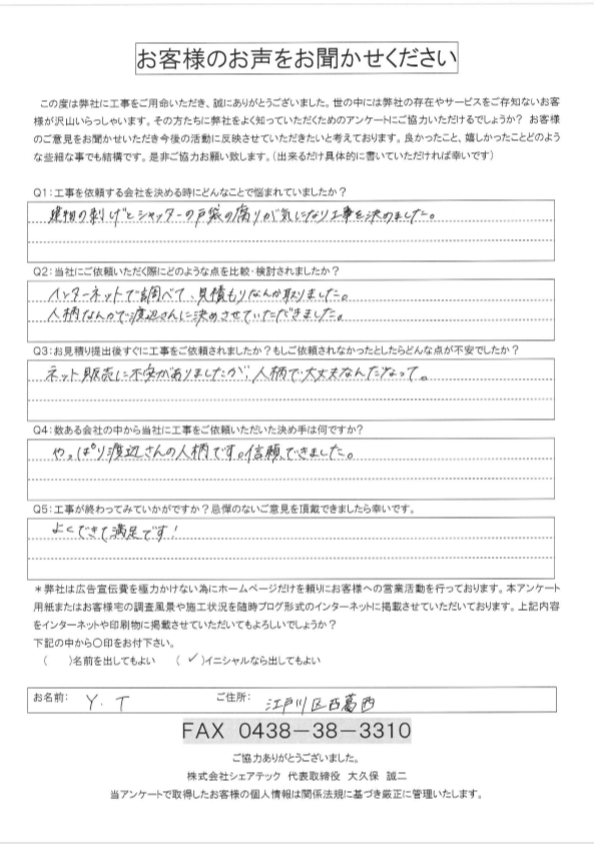 お客様のお声をお聞かせください
この度は弊社に工事をご用命いただき、誠にありがとうございました。世の中には弊社の存在やサービスをご存知ないお客
様が沢山いらっしゃいます。その方たちに弊社をよく知っていただくためのアンケートにご協力いただけるでしょうか？ お客様
のご意見をお聞かせいただき今後の活動に反映させていただきたいと考えております。良かったこと、嬉しかったことどのよう
な些細な事でも結構です。是非ご協力お願い致します。（出来るだけ具体的に書いていただければ幸いです）
Q1：工事を依頼する会社を決める時にどんなことで悩まれていましたか？
建物の剥げとシャッターの戸袋の腐りが気になり工事を決めました。
Q2：当社にご依頼いただく際にどのような点を比較・検討されましたか？
インターネットで調べて、見積もりなんか取りました。
人柄なんかで渡辺さんに決めさせていただきました。
Q3：お見積り提出後すぐに工事をご依頼されましたか？もしご依頼されなかったとしたらどんな点が不安でしたか？
ネット販売に不安がありましたが、人柄で大丈夫なんだなって。
Q4：数ある会社の中から当社に工事をご依頼いただいた決め手は何ですか？
やっぱり渡辺さんの人柄です。信頼できました。
Q5：工事が終わってみていかがですか？忌憚のないご意見を頂戴できましたら幸いです。
よくできて満足です！
＊弊社は広告宣伝費を極力かけない為にホームページだけを頼りにお客様への営業活動を行っております。本アンケート
用紙またはお客様宅の調査風景や施工状況を随時ブログ形式のインターネットに掲載させていただいております。上記内容
をインターネットや印刷物に掲載させていただいてもよろしいでしょうか？
下記の中から〇印をお付下さい。
（ ）名前を出してもよい （✓）イニシャルなら出してもよい
お名前： Y. T ご住所： 江戸川区西葛西
FAX 0438－38－3310
ご協力ありがとうございました。
株式会社シェアテック 代表取締役 大久保 誠二
当アンケートで取得したお客様の個人情報は関係法規に基づき厳正に管理いたします。